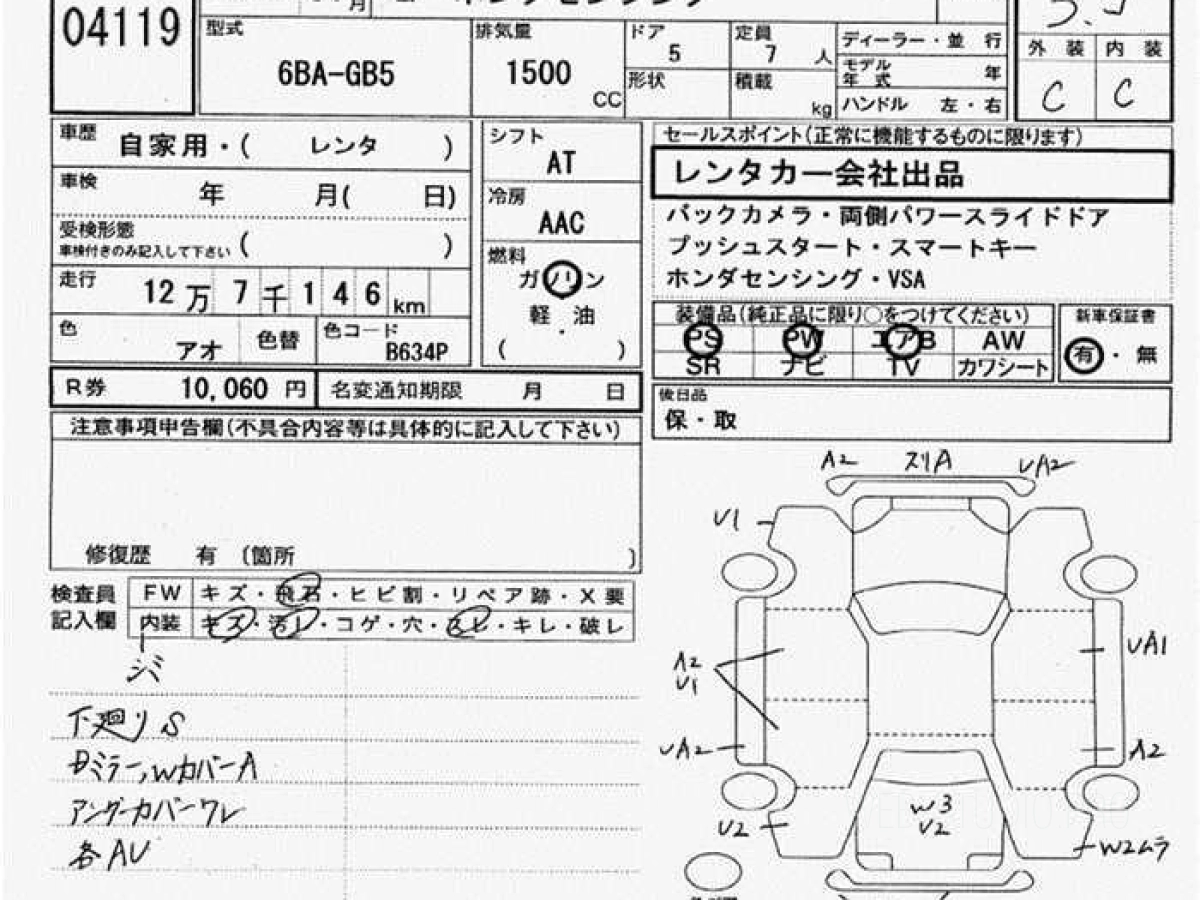 04119
月
ホンダセンシング
型式
6BA-GB5
排気量
1500
CC
ドア
5
定員
7 人
形状
積載
kg
ディーラー・並 行
モデル
年 式 年
ハンドル 左・右
外 装 内 装
C C
車歴 自家用・( レンタ )
車検 年 月( 日)
受検形態
車検付きのみ記入して下さい ( )
走行 12万 7千 1 4 6 km
色 アオ 色替 色コード B634P
R券 10,060 円 名変通知期限 月 日
シフト
AT
冷房
AAC
燃料
ガソリン
軽・油
( )
セールスポイント(正常に機能するものに限ります)
レンタカー会社出品
バックカメラ・両側パワースライドドア
プッシュスタート・スマートキー
ホンダセンシング・VSA
装備品(純正品に限り○をつけてください)
PS PW エアB AW
SR ナビ TV カワシート
新車保証書
有・無
後日品
保・取
注意事項申告欄(不具合内容等は具体的に記入して下さい)
修復歴 有 (箇所 )
検査員
記入欄
FW キズ・飛石・ヒビ割・リペア跡・X要
内装 キズ・汚レ・コゲ・穴・スレ・キレ・破レ
シミ
下廻りS
Dミラー,WカバーA
アンダーカバーワレ
各AU
A2 スリA UA2
U1
A2
U1
UA1
UA2
A2
W3
U2
U2
W2ムラ